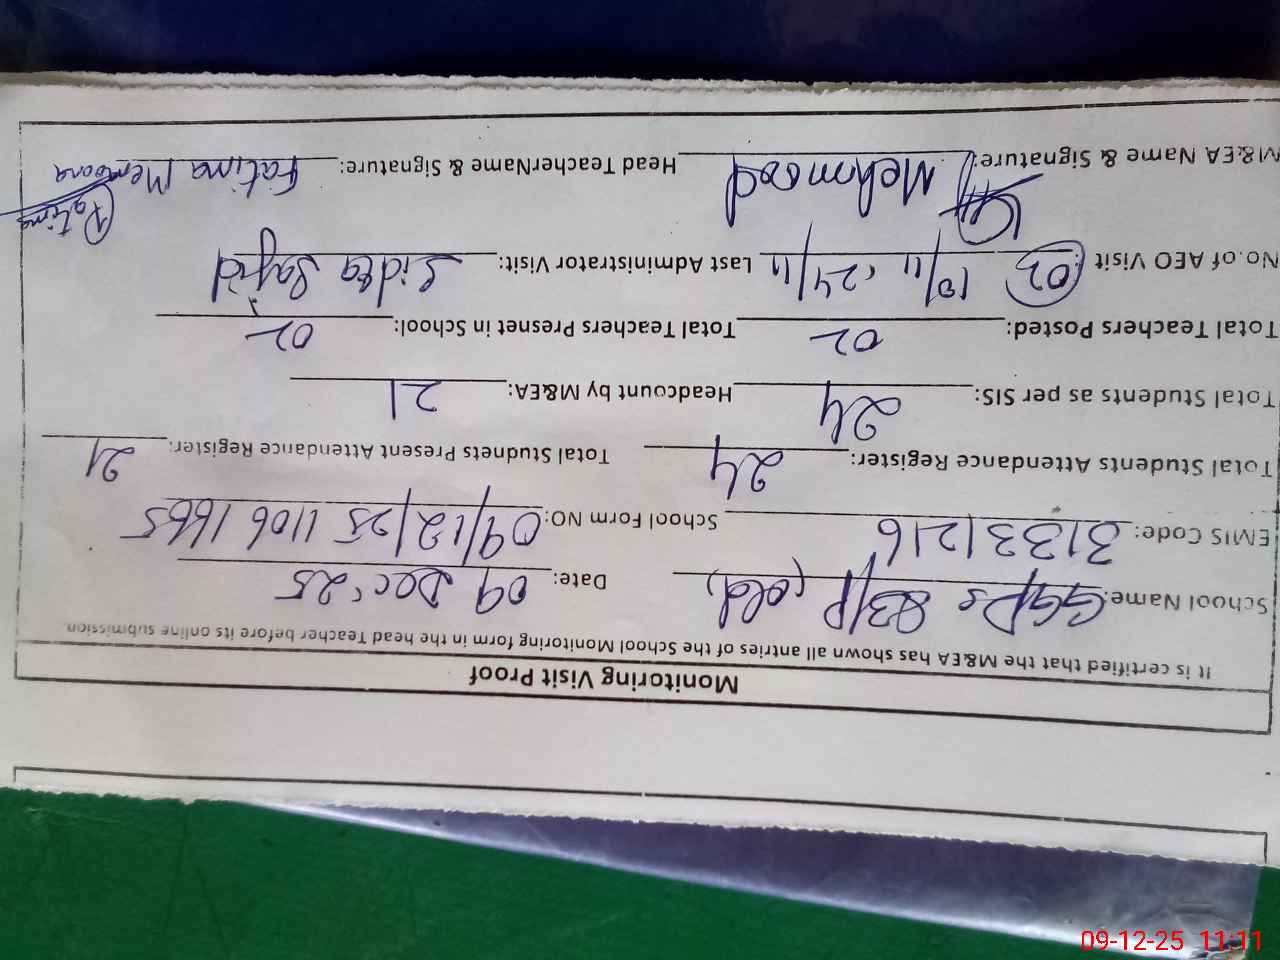 Monitoring Visit Proof
It is certified that the M&EA has shown all antries of the School Monitoring form in the head Teacher before its online submission
School Name: GGPS 83/P (old) Date: 09 Dec' 25
EMIS Code: 31331216 School Form NO: 09/12/25 1106 1665
Total Students Attendance Register: 24 Total Studnets Present Attendance Register: 21
Total Students as per SIS: 24 Headcount by M&EA: 21
Total Teachers Posted: 02 Total Teachers Presnet in School: 02
No. of AEO Visit : 02 10/11, 24/11 Last Administrator Visit: Sidra
M&EA Name & Signature: Mehmood Head TeacherName & Signature: Fatima Memoona
Fatima
09-12-25 11:11